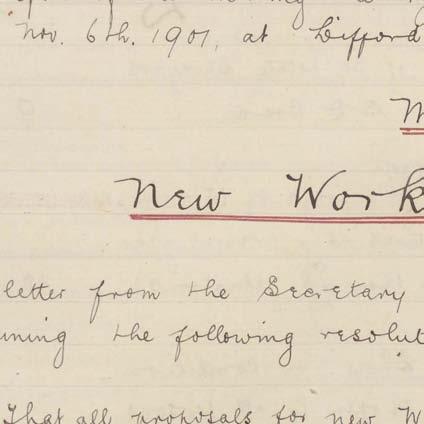 Nov. 6th. 1901, at Lifford
New Work
letter from the Secretary
ining the following resolut
That all proposals for new W